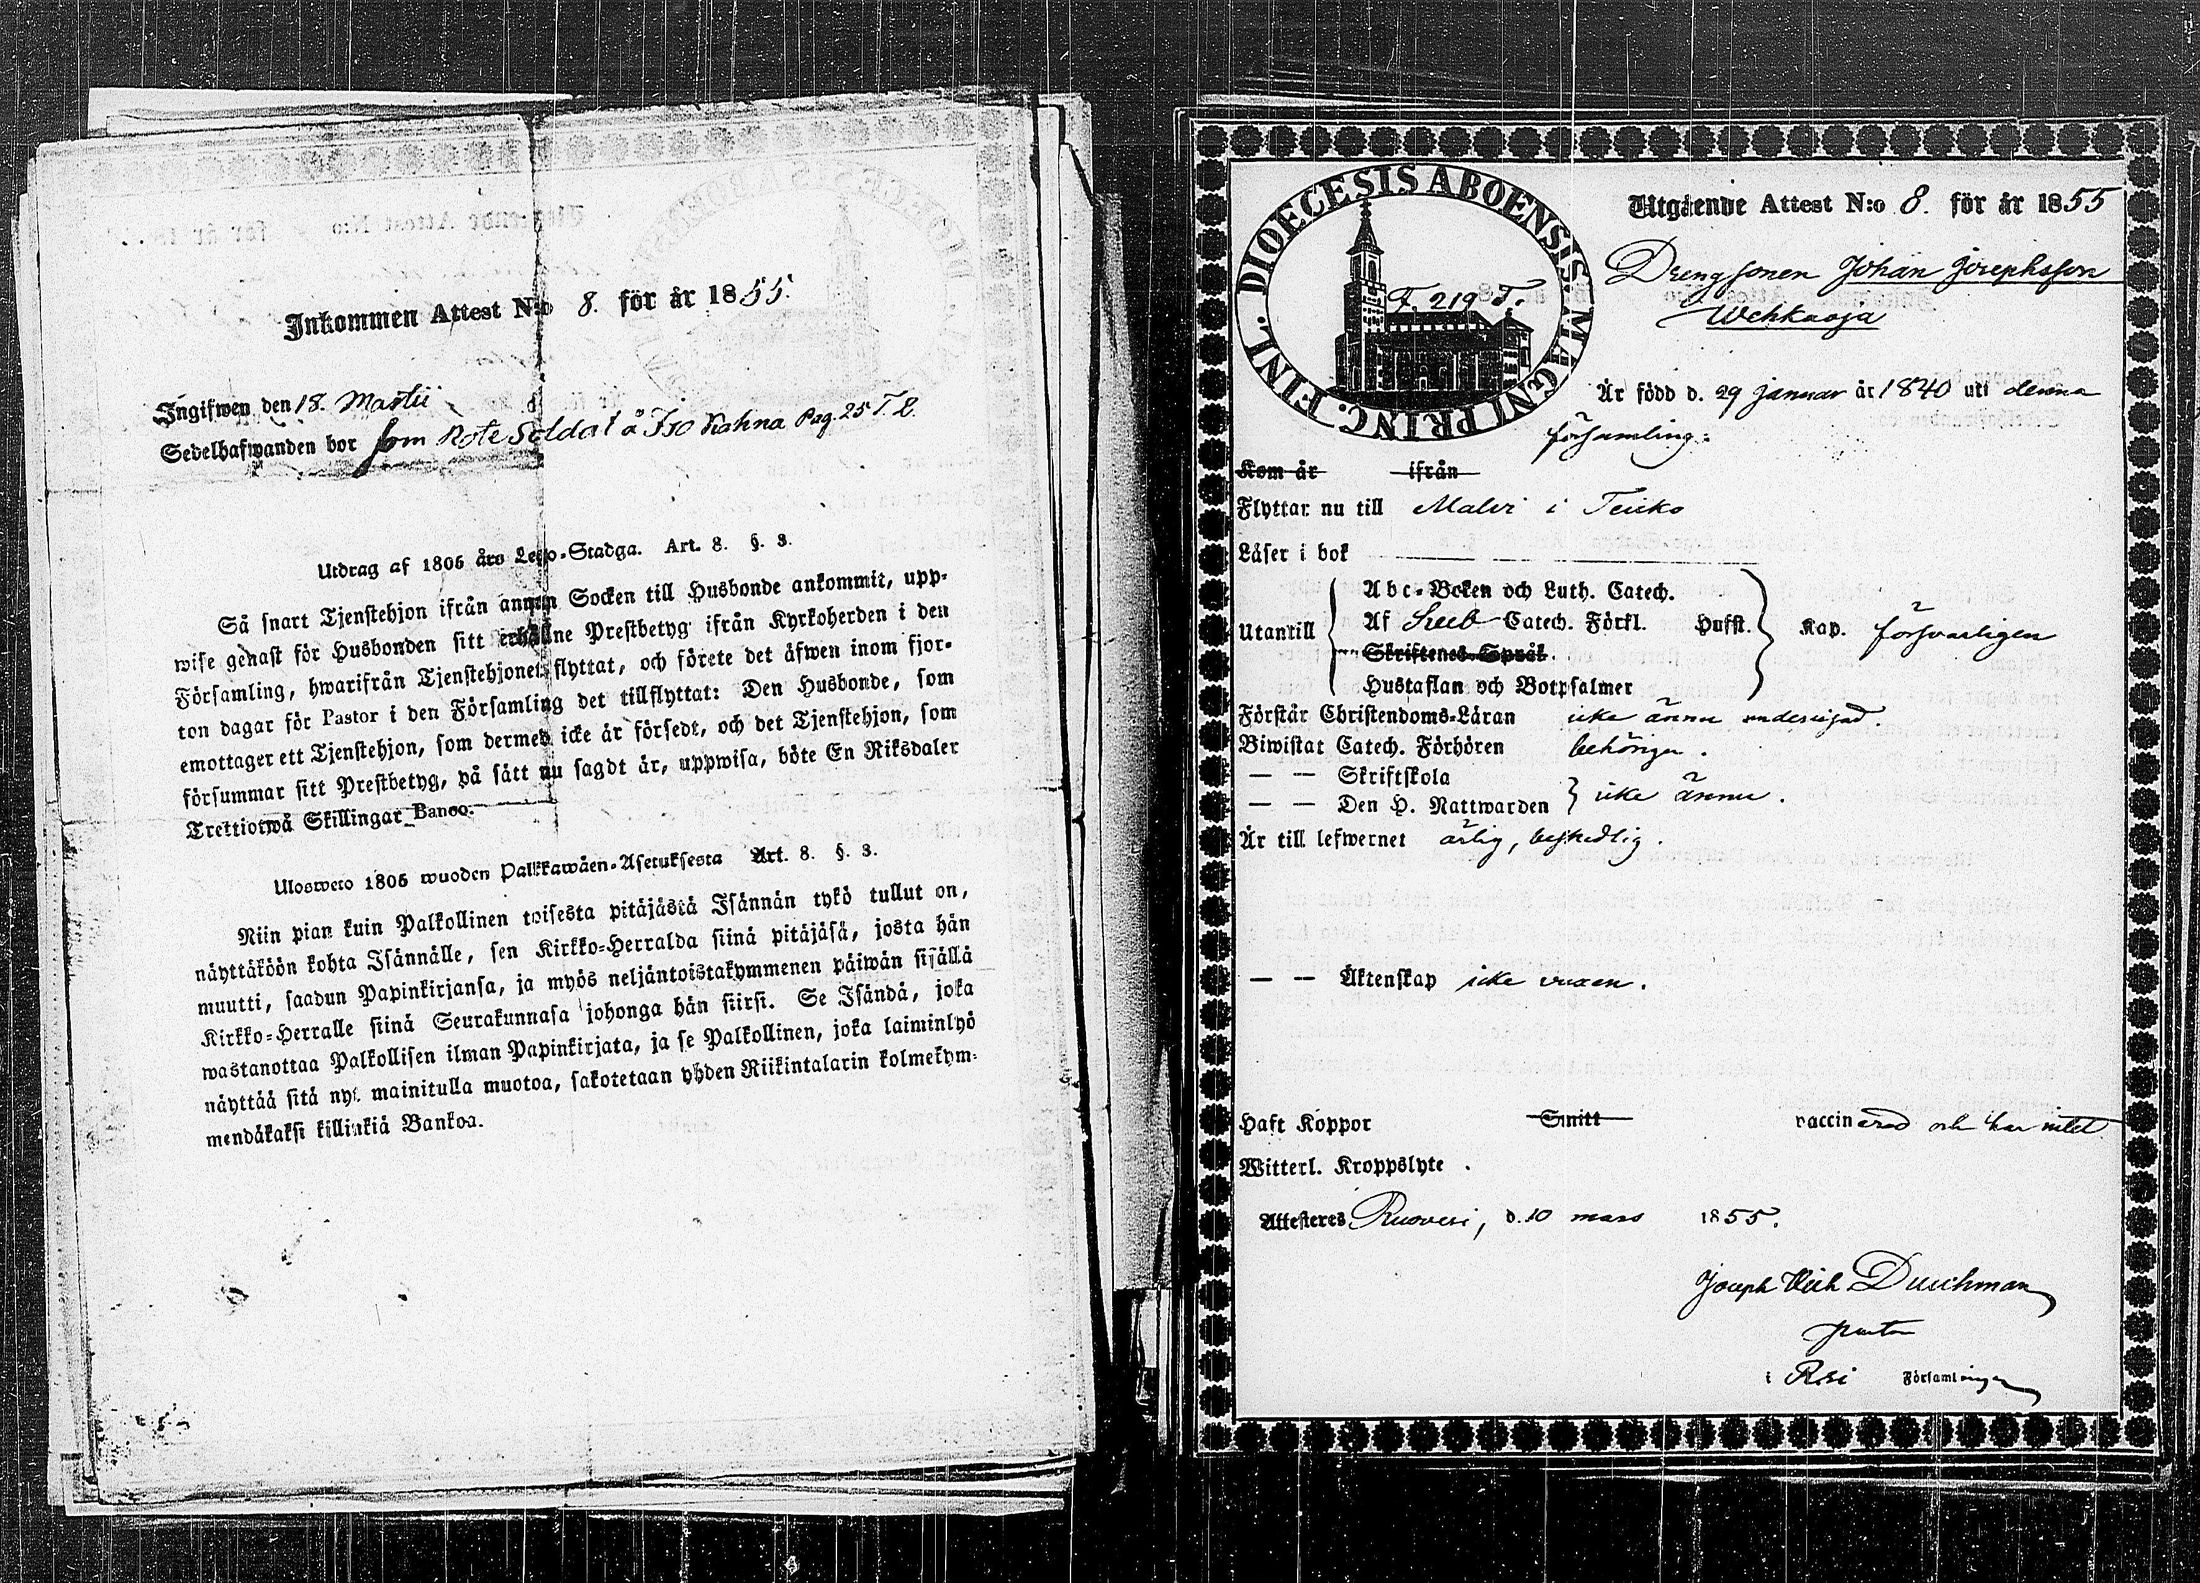 Inkommen Attest N:o 8. för år 1855.
Ingifwen den 18. Martii
Sedelhafwanden bor som Rote Soldat å Iso Kahna Pag. 25 T. 2.
Utdrag af 1805 års Lego-Stadga. Art. 8. §. 3.
Så snart Tjenstehjon ifrån annan Socken till Husbonde ankommit, upp-
wise genast för Husbonden sitt erhållne Prestbetyg ifrån Kyrkoherden i den
Församling, hwarifrån Tjenstehjonet flyttat, och förete det äfwen inom fjor-
ton dagar för Pastor i den Församling det tillflyttat: Den Husbonde, som
emottager ett Tjenstehjon, som dermed icke är försedt, och det Tjenstehjon, som
försummar sitt Prestbetyg, på sätt nu sagdt är, uppwisa, böte En Riksdaler
Trettiotwå Skillingar Banco.
Ulosweto 1805 wuoden Palkkawäen-Asetuksesta Art. 8. §. 3.
Niin pian kuin Palkollinen toisesta pitäjästä Isännän tykö tullut on,
näyttäköön kohta Isännälle, sen Kirkko-Herralda siinä pitäjäsä, josta hän
muutti, saadun Papinkirjansa, ja myös neljäntoistakymmenen päiwän sisällä
Kirkko-Herralle siinä Seurakunnasa johonga hän siirsi. Se Isändä, joka
wastanottaa Palkollisen ilman Papinkirjata, ja se Palkollinen, joka laiminlyö
näyttää sitä nyt mainitulla muotoa, sakotetaan yhden Riikintalarin kolmekym-
mendäkaksi killinkiä Bankoa.
DIOECESIS ABOENSIS. MAGNI PRINC. FINL.
F. 219 T.
Utgående Attest N:o 8. för år 1855
Drengsonen Johan Josephsson
Wehkaoja
Är född d. 29 Januar år 1840 uti denna
församling.
Kom år ifrån
Flyttar nu till Malvi i Teisko
Läser i bok
Utantill
Abc-Boken och Luth. Catech.
Af Sveb Catech. Förkl. Hufst. Kap. försvarligen
Skriftenes Språk.
Hustaflan och Botpsalmer
Förstår Christendoms-Läran icke ännu undervisad.
Biwistat Catech. Förhören behörigen.
— — Skriftskola
— — Den H. Nattwarden icke ännu.
Är till lefwernet ärlig, beskedlig.
— — Äktenskap icke vuxen.
Haft Koppor Smitt vaccinerad och har intet
Witterl. Kroppslyte.
Attesteres Ruovesi, d. 10 mars 1855.
Joseph Duchman
pastor
i R:si Församlingen